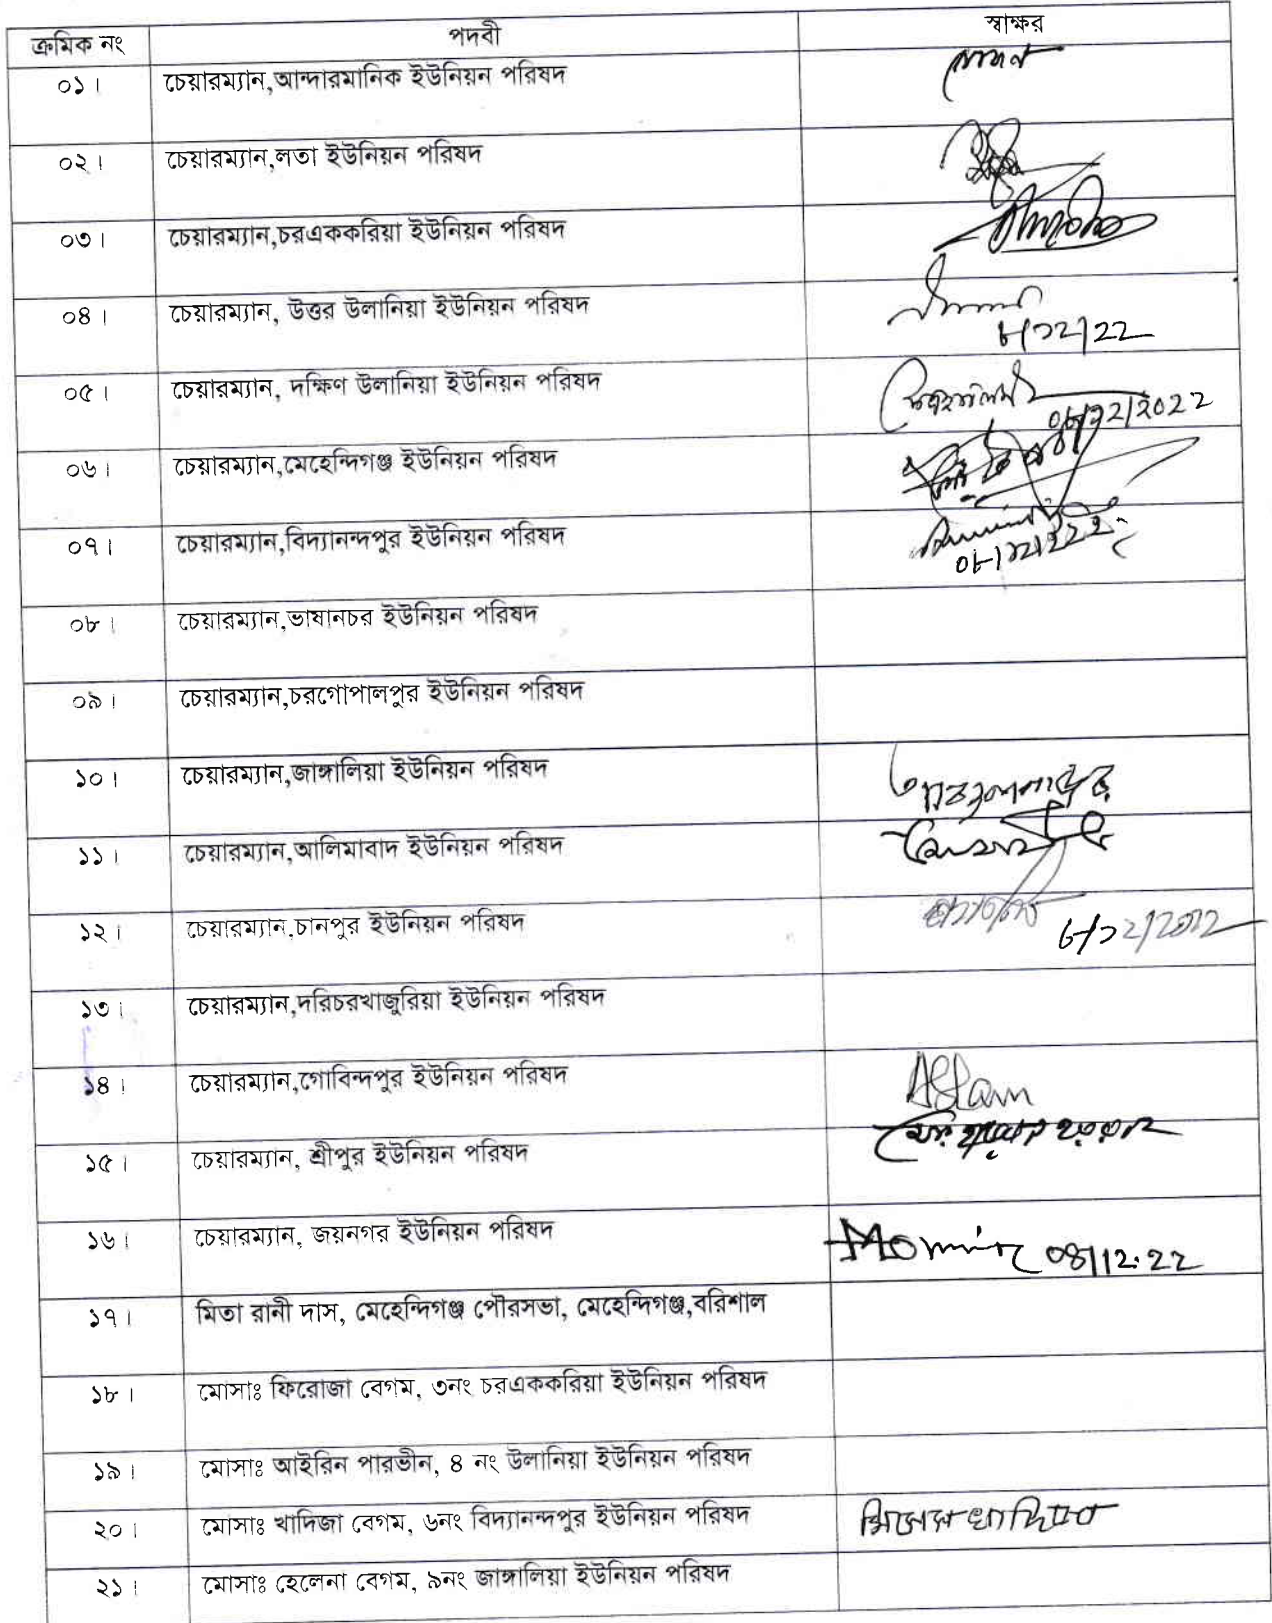 ক্রমিক নং পদবী স্বাক্ষর
০১। চেয়ারম্যান,আন্দারমানিক ইউনিয়ন পরিষদ
০২। চেয়ারম্যান,লতা ইউনিয়ন পরিষদ
০৩। চেয়ারম্যান,চরএককরিয়া ইউনিয়ন পরিষদ
০৪। চেয়ারম্যান, উত্তর উলানিয়া ইউনিয়ন পরিষদ
৮/১২/২২
০৫। চেয়ারম্যান, দক্ষিণ উলানিয়া ইউনিয়ন পরিষদ
০৮/১২/২০২২
০৬। চেয়ারম্যান,মেহেন্দিগঞ্জ ইউনিয়ন পরিষদ
০৭। চেয়ারম্যান,বিদ্যানন্দপুর ইউনিয়ন পরিষদ
০৮। চেয়ারম্যান,ভাষানচর ইউনিয়ন পরিষদ
০৯। চেয়ারম্যান,চরগোপালপুর ইউনিয়ন পরিষদ
১০। চেয়ারম্যান,জাঙ্গালিয়া ইউনিয়ন পরিষদ
১১। চেয়ারম্যান,আলিমাবাদ ইউনিয়ন পরিষদ
১২। চেয়ারম্যান,চানপুর ইউনিয়ন পরিষদ
১৩। চেয়ারম্যান,দরিচরখাজুরিয়া ইউনিয়ন পরিষদ
১৪। চেয়ারম্যান,গোবিন্দপুর ইউনিয়ন পরিষদ Aslam
১৫। চেয়ারম্যান, শ্রীপুর ইউনিয়ন পরিষদ
১৬। চেয়ারম্যান, জয়নগর ইউনিয়ন পরিষদ 08/12.22
১৭। মিতা রানী দাস, মেহেন্দিগঞ্জ পৌরসভা, মেহেন্দিগঞ্জ,বরিশাল
১৮। মোসাঃ ফিরোজা বেগম, ৩নং চরএককরিয়া ইউনিয়ন পরিষদ
১৯। মোসাঃ আইরিন পারভীন, ৪ নং উলানিয়া ইউনিয়ন পরিষদ
২০। মোসাঃ খাদিজা বেগম, ৬নং বিদ্যানন্দপুর ইউনিয়ন পরিষদ
২১। মোসাঃ হেলেনা বেগম, ৯নং জাঙ্গালিয়া ইউনিয়ন পরিষদ